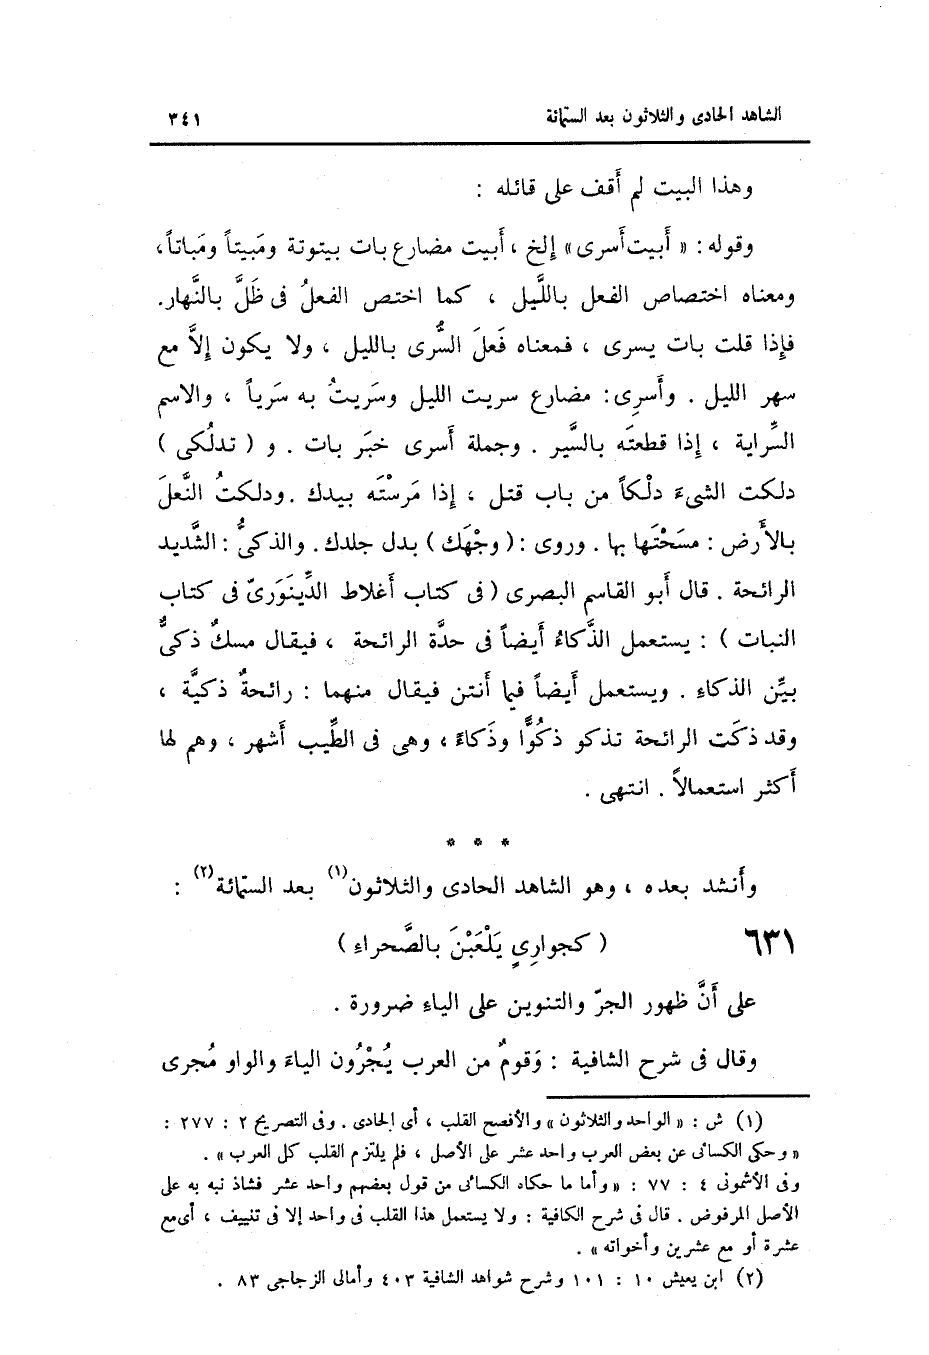 الشاهد الحادى والثلاثون بعد الستمائة ٣٤١
وهذا البيت لم أَقف على قائله :
وقوله : « أَبيت أَسرى » إلخ ، أَبيت مضارع بات بيتوتة ومَبيتاً ومَباتاً ،
ومعناه اختصاص الفعل باللَّيل ، كما اختص الفعلُ فى ظَلَّ بالنَّهار.
فإِذا قلت بات يسرى ، فمعناه فَعلَ السُّرى بالليل ، ولا يكون إلاَّ مع
سهر الليل . وأَسرِى : مضارع سريت الليل وسَريتُ به سَرياً ، والاسم
السِّراية ، إذا قطعتَه بالسَّير . وجملة أَسرى خبَر بات . و ( تدلُكى )
دلكت الشىءَ دلْكاً من باب قتل ، إذا مَرسْتَه بيدك . ودلكتُ النَّعلَ
بالأَرض : مسَحْتَها بها . وروى : ( وجْهَك ) بدل جلدك . والذكىُّ : الشَّديد
الرائحة . قال أَبو القاسم البصرى ( فى كتاب أَغلاط الدِّينَوَرىّ فى كتاب
النبات ) : يستعمل الذَّكاءُ أَيضاً فى حدَّة الرائحة ، فيقال مسكٌ ذكىٌّ
بيِّن الذكاءِ . ويستعمل أَيضاً فيما أَنتن فيقال منهما : رائحةٌ ذكيَّة ،
وقد ذكَت الرائحة تذكو ذكُوًّا وذَكاءً ، وهى فى الطِّيب أَشهر ، وهم لها
أَكثر استعمالاً . انتهى .
* * *
وأَنشد بعده ، وهو الشاهد الحادى والثلاثون(١) بعد الستمائة(٢) :
٦٣١ ( كجوارِىٍ يَلْعَبْنَ بالصَّحراءِ )
على أَنَّ ظهور الجرّ والتنوين على الياءِ ضرورة .
وقال فى شرح الشافية : وَقومٌ من العرب يُجْرُون الياءَ والواو مُجرى
(١) ش : « الواحد والثلاثون » والأفصح القلب ، أى الحادى . وفى التصريح ٢ : ٢٧٧ :
« وحكى الكسائى عن بعض العرب واحد عشر على الأصل ، فلم يلتزم القلب كل العرب » .
وفى الأشمونى ٤ : ٧٧ : « وأما ما حكاه الكسائى من قول بعضهم واحد عشر فشاذ نبه به على
الأصل المرفوض . قال فى شرح الكافية : ولا يستعمل هذا القلب فى واحد إلا فى تنييف ، أى مع
عشرة أو مع عشرين وأخواته » .
(٢) ابن يعيش ١٠ : ١٠١ وشرح شواهد الشافية ٤٠٣ وأمالى الزجاجى ٨٣ .